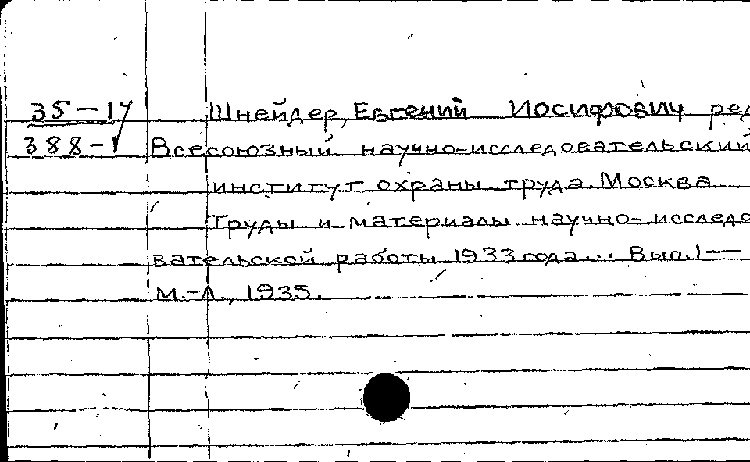 35-17 Шнейдер, Евгений Иосифович ред
388-1 Всесоюзный научно-исследовательский
институт охраны труда. Москва
Труды и материалы научно-исследо
вательской работы 1933 года... Вып.1—
М.-Л., 1935.